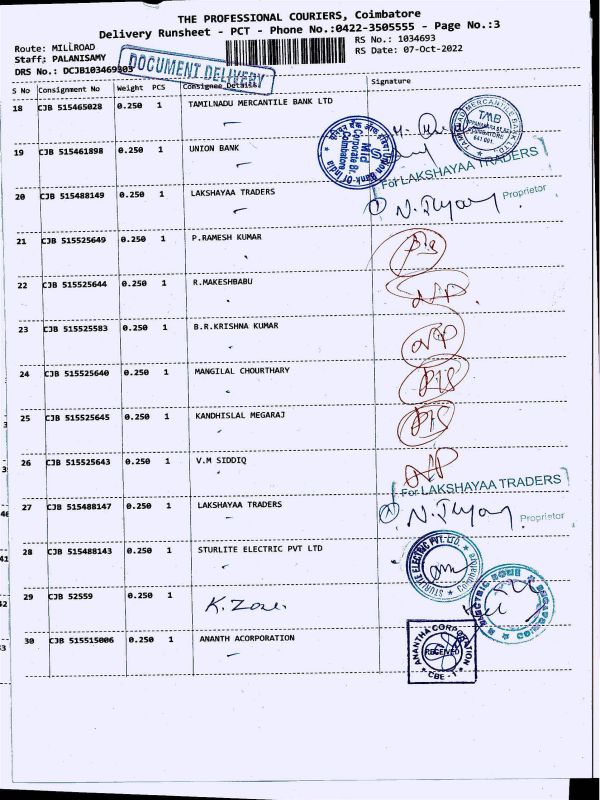 THE PROFESSIONAL COURIERS, Coimbatore
Delivery Runsheet - PCT - Phone No.:0422-3505555 - Page No.:3
Route: MILLROAD
RS No.: 1034693
Staff: PALANISAMY
RS Date: 07-Oct-2022
DRS No.: DCJB103469303
DOCUMENT DELIVERY
S No Consignment No Weight PCS Consignee Details Signature
18 CJB 515465028 0.250 1 TAMILNADU MERCANTILE BANK LTD
TAMILNAD MERCANTILE BANK LTD.
TMB
COIMBATORE
641 001.
19 CJB 515461898 0.250 1 UNION BANK
Union Bank Of India
Corporate Br.
Coimbatore
For LAKSHAYAA TRADERS
20 CJB 515488149 0.250 1 LAKSHAYAA TRADERS
Proprietor
21 CJB 515525649 0.250 1 P.RAMESH KUMAR
22 CJB 515525644 0.250 1 R.MAKESHBABU
23 CJB 515525583 0.250 1 B.R.KRISHNA KUMAR
24 CJB 515525640 0.250 1 MANGILAL CHOURTHARY
25 CJB 515525645 0.250 1 KANDHISLAL MEGARAJ
26 CJB 515525643 0.250 1 V.M SIDDIQ
For LAKSHAYAA TRADERS
27 CJB 515488147 0.250 1 LAKSHAYAA TRADERS
Proprietor
28 CJB 515488143 0.250 1 STURLITE ELECTRIC PVT LTD
STURLITE ELECTRIC PVT. LTD.
Coimbatore
29 CJB 52559 0.250 1 K. Zone.
30 CJB 515515006 0.250 1 ANANTH ACORPORATION
ANANTHA CORPORATION
RECEIVED
CBE - 1